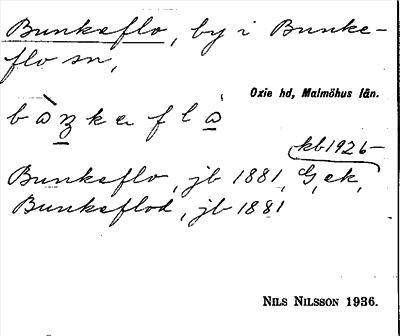 Bunkeflo, by i Bunke-
flo sn,
Oxie hd, Malmöhus län.
kb 1926-
Bunkeflo, jb 1881, G, ek,
Bunkeflod, jb 1881
NILS NILSSON 1936.